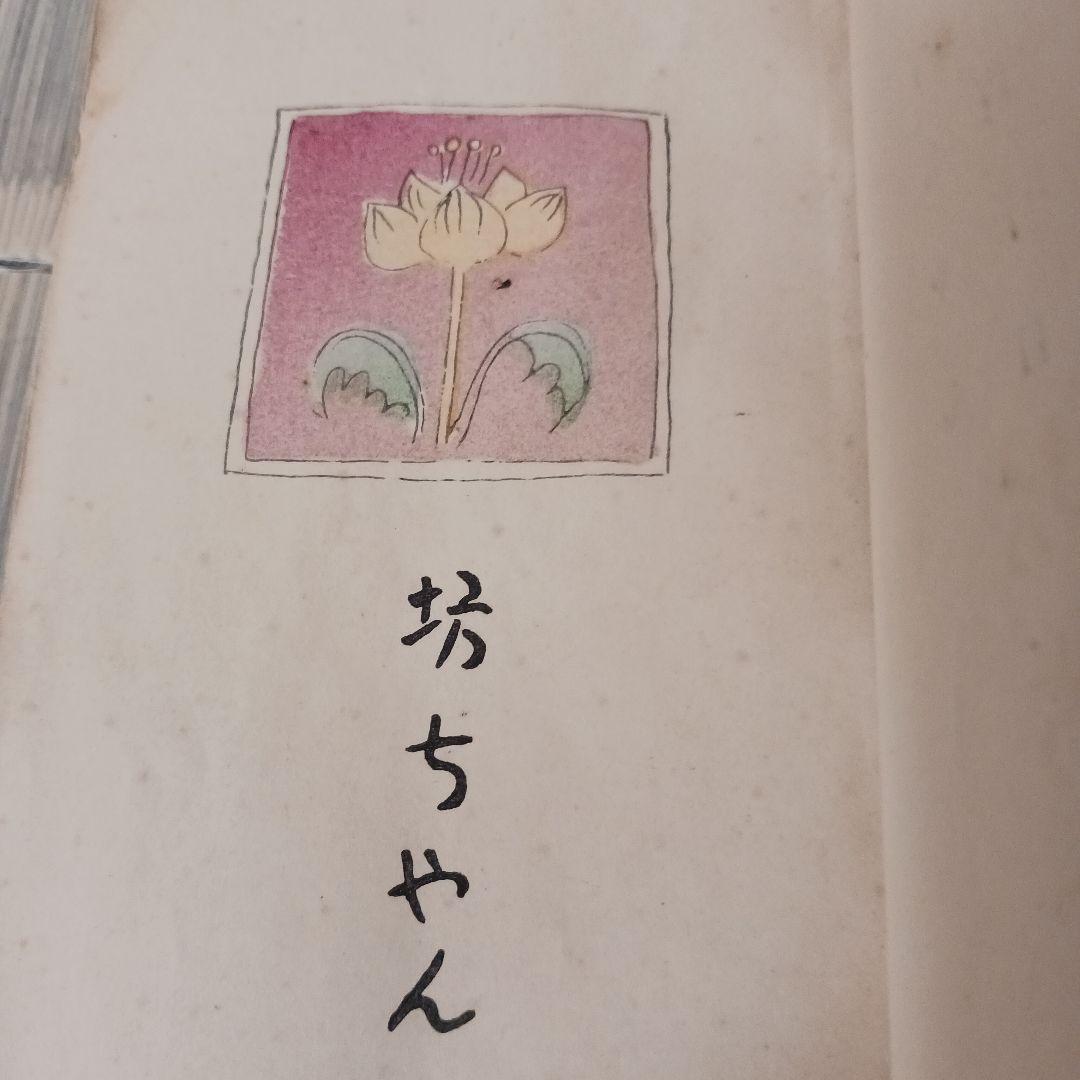 坊ちやん